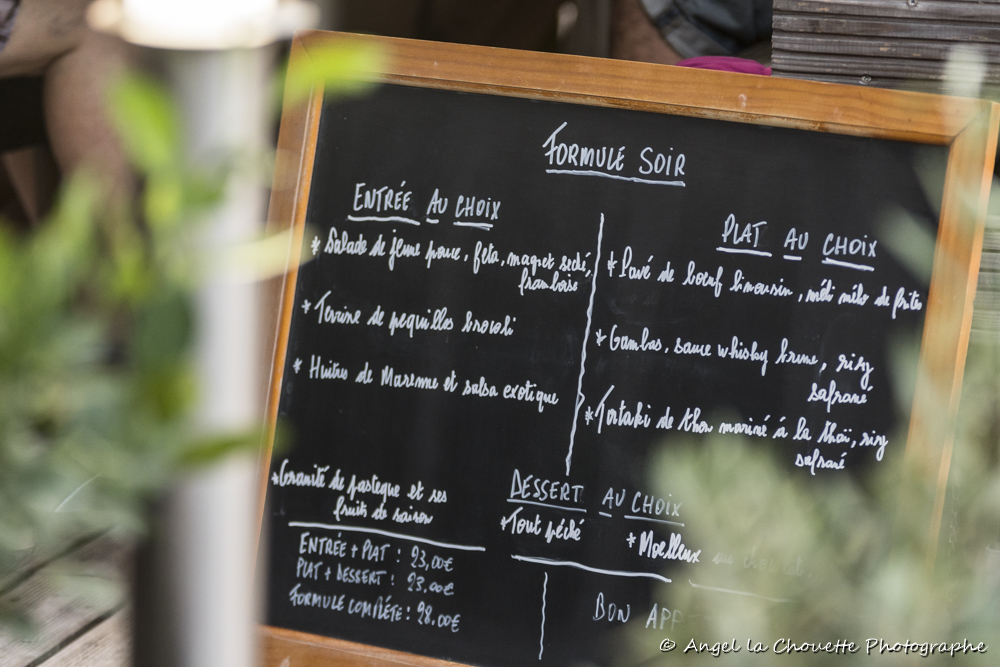 FORMULE SOIR
ENTRÉE AU CHOIX
* Salade de jeune pouce, feta, magret séché,
framboise
* Terrine de pequillos brocoli
* Huitres de Marenne et salsa exotique
PLAT AU CHOIX
* Pavé de bœuf limousin, méli mélo de frite
* Gambas, sauce whisky brune, rizy
safrané
* Tortaki de thon mariné à la thaï, rizy
safrané
DESSERT AU CHOIX
* Granité de pasteque et ses
fruits de saison
* Tout péché
* Moelleux au
ENTRÉE + PLAT : 23,00€
PLAT + DESSERT : 23.00€
FORMULE COMPLÉTE : 28.00€
BON APP
© Angel la Chouette Photographe